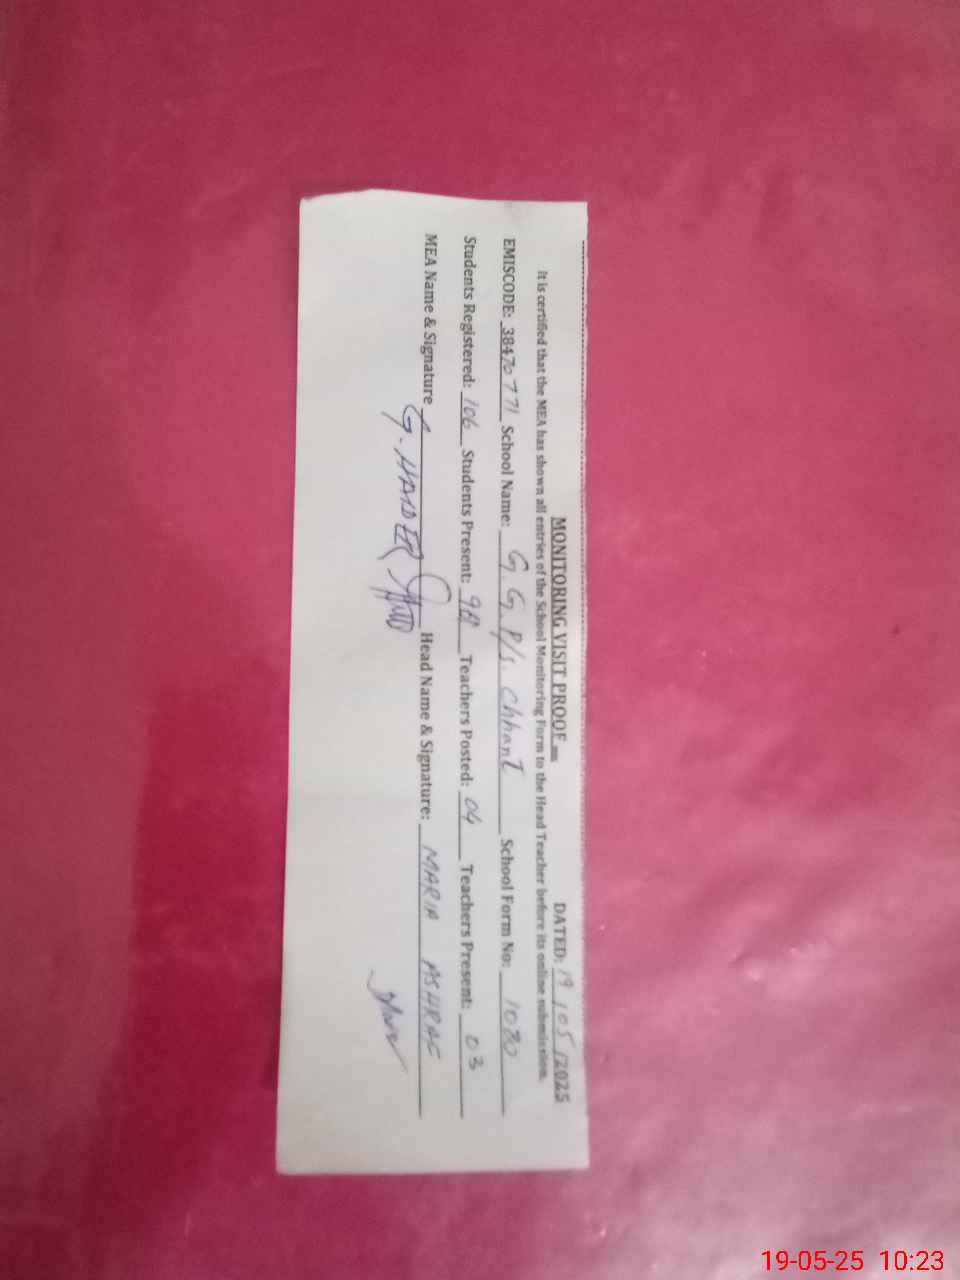 MONITORING VISIT PROOF DATED: 19/05/2025
It is certified that the MEA has shown all entries of the School Monitoring Form to the Head Teacher before its online submission.
EMISCODE: 38470771 School Name: G.G.P/s. Chhant School Form No: 1080
Students Registered: 106 Students Present: Teachers Posted: 04 Teachers Present: 03
MEA Name & Signature G. HAIDER Head Name & Signature: MARIA ASHRAF
19-05-25 10:23